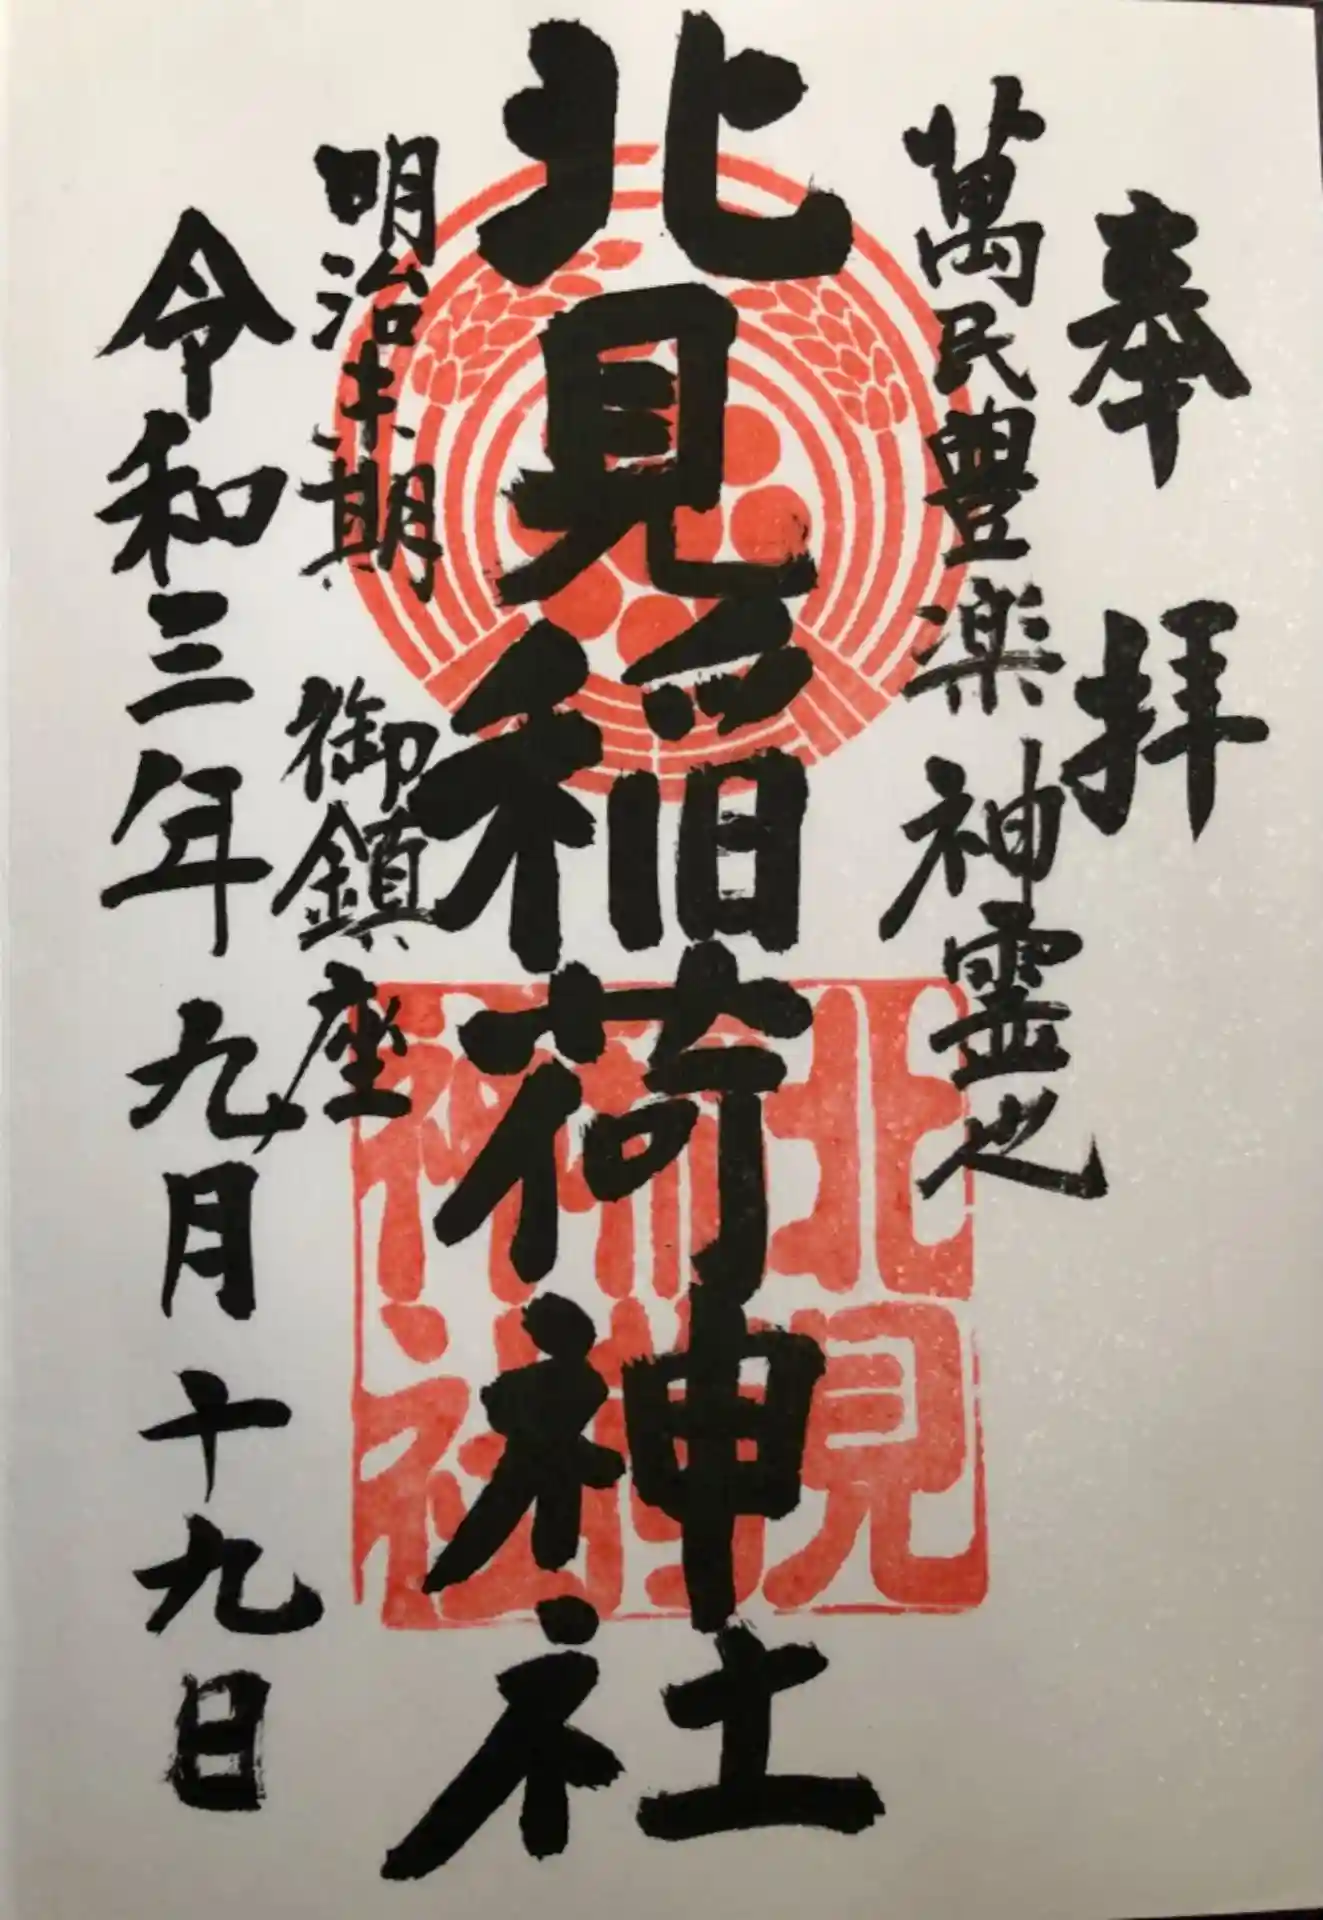 奉拝
萬民豊楽神霊也
北見稲荷神社
明治末期 御鎮座
令和三年九月十九日
北見
稲荷
神社